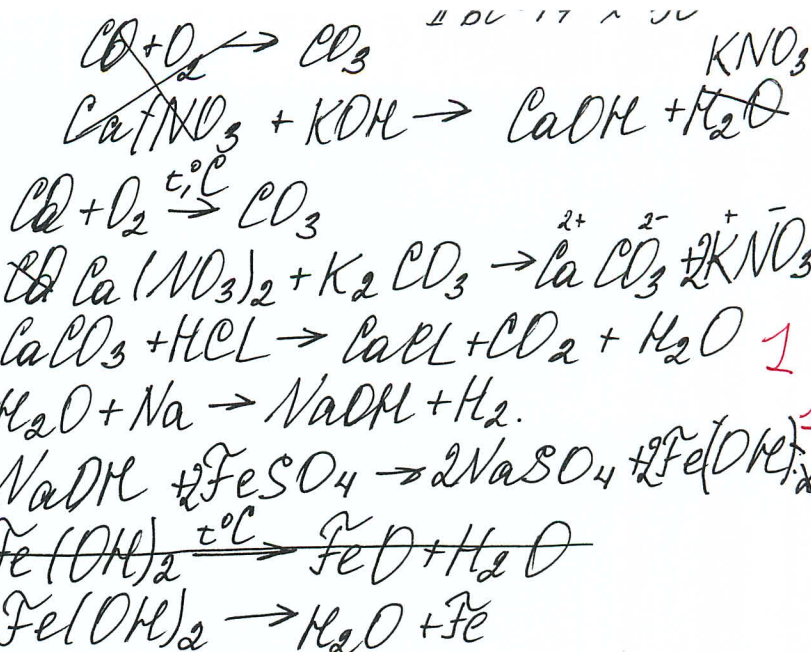 CO + O₂ → CO₃
KNO₃
Ca(NO₃ + KOH → CaOH + H₂O
CO + O₂ t,°C → CO₃
Ca(NO₃)₂ + K₂CO₃ → Ca²⁺CO₃²⁻ + 2K⁺NO₃⁻
CaCO₃ + HCL → CaCL + CO₂ + H₂O 1
H₂O + Na → NaOH + H₂.
NaOH + 2FeSO₄ → 2NaSO₄ + 2Fe(OH)₂
Fe(OH)₂ t°C → FeO + H₂O
Fe(OH)₂ → H₂O + Fe